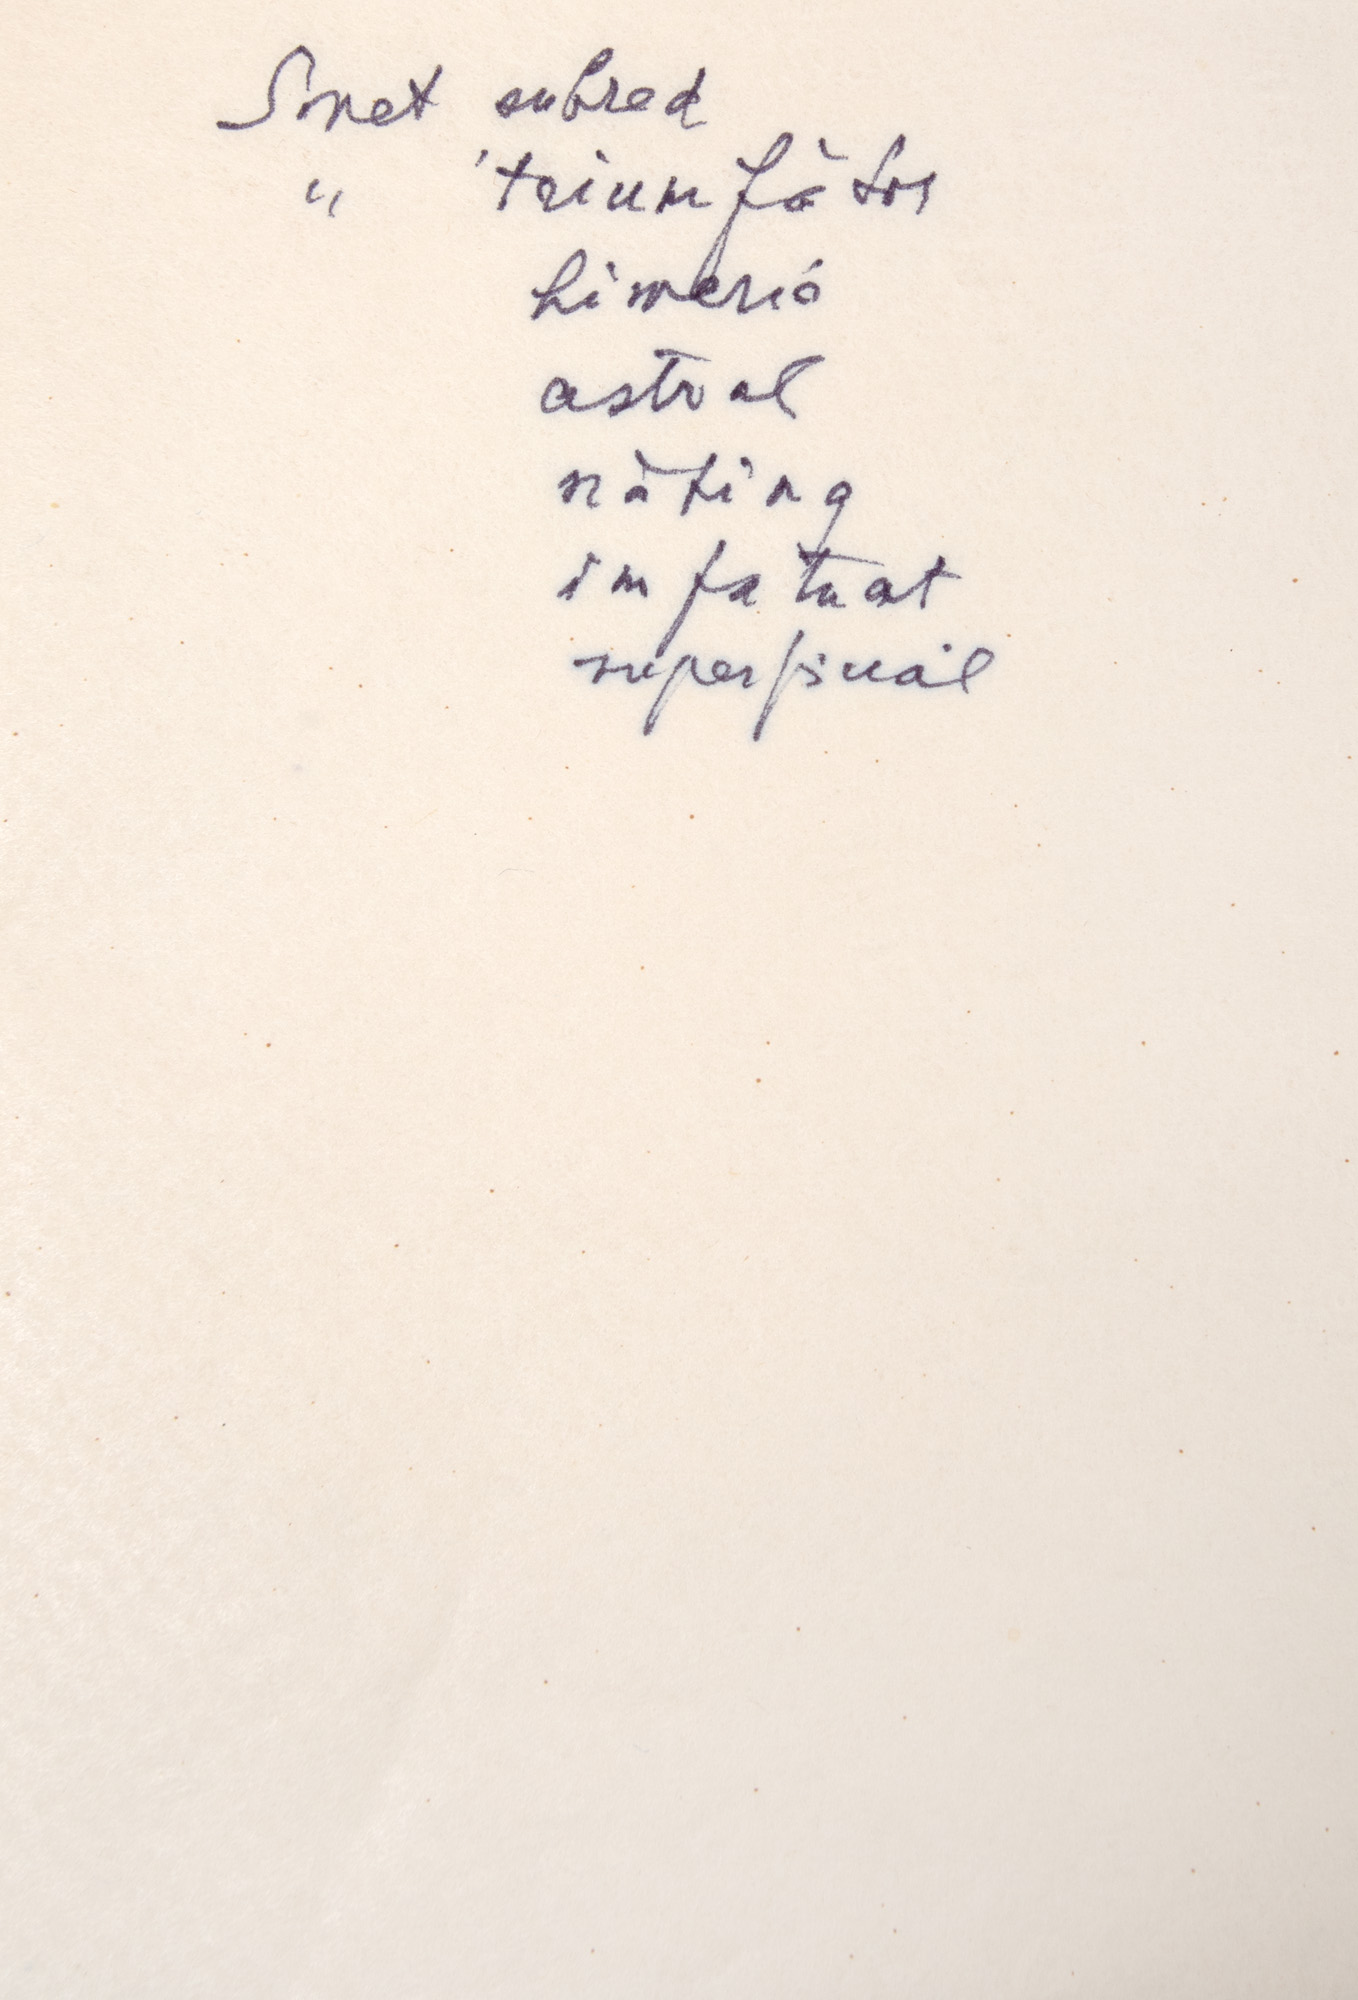 Sonet subred
" triumfător
himeric
astral
nătâng
imfatuat
superfinal